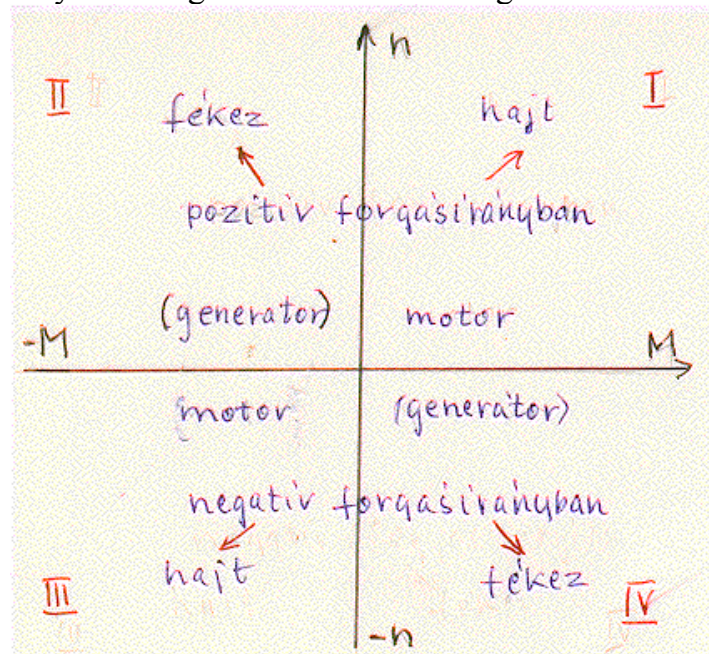 n
II
I
fékez
hajt
pozitív forgásirányban
(generátor)
motor
-M
M
motor
(generátor)
negatív forgásirányban
hajt
fékez
III
IV
-n